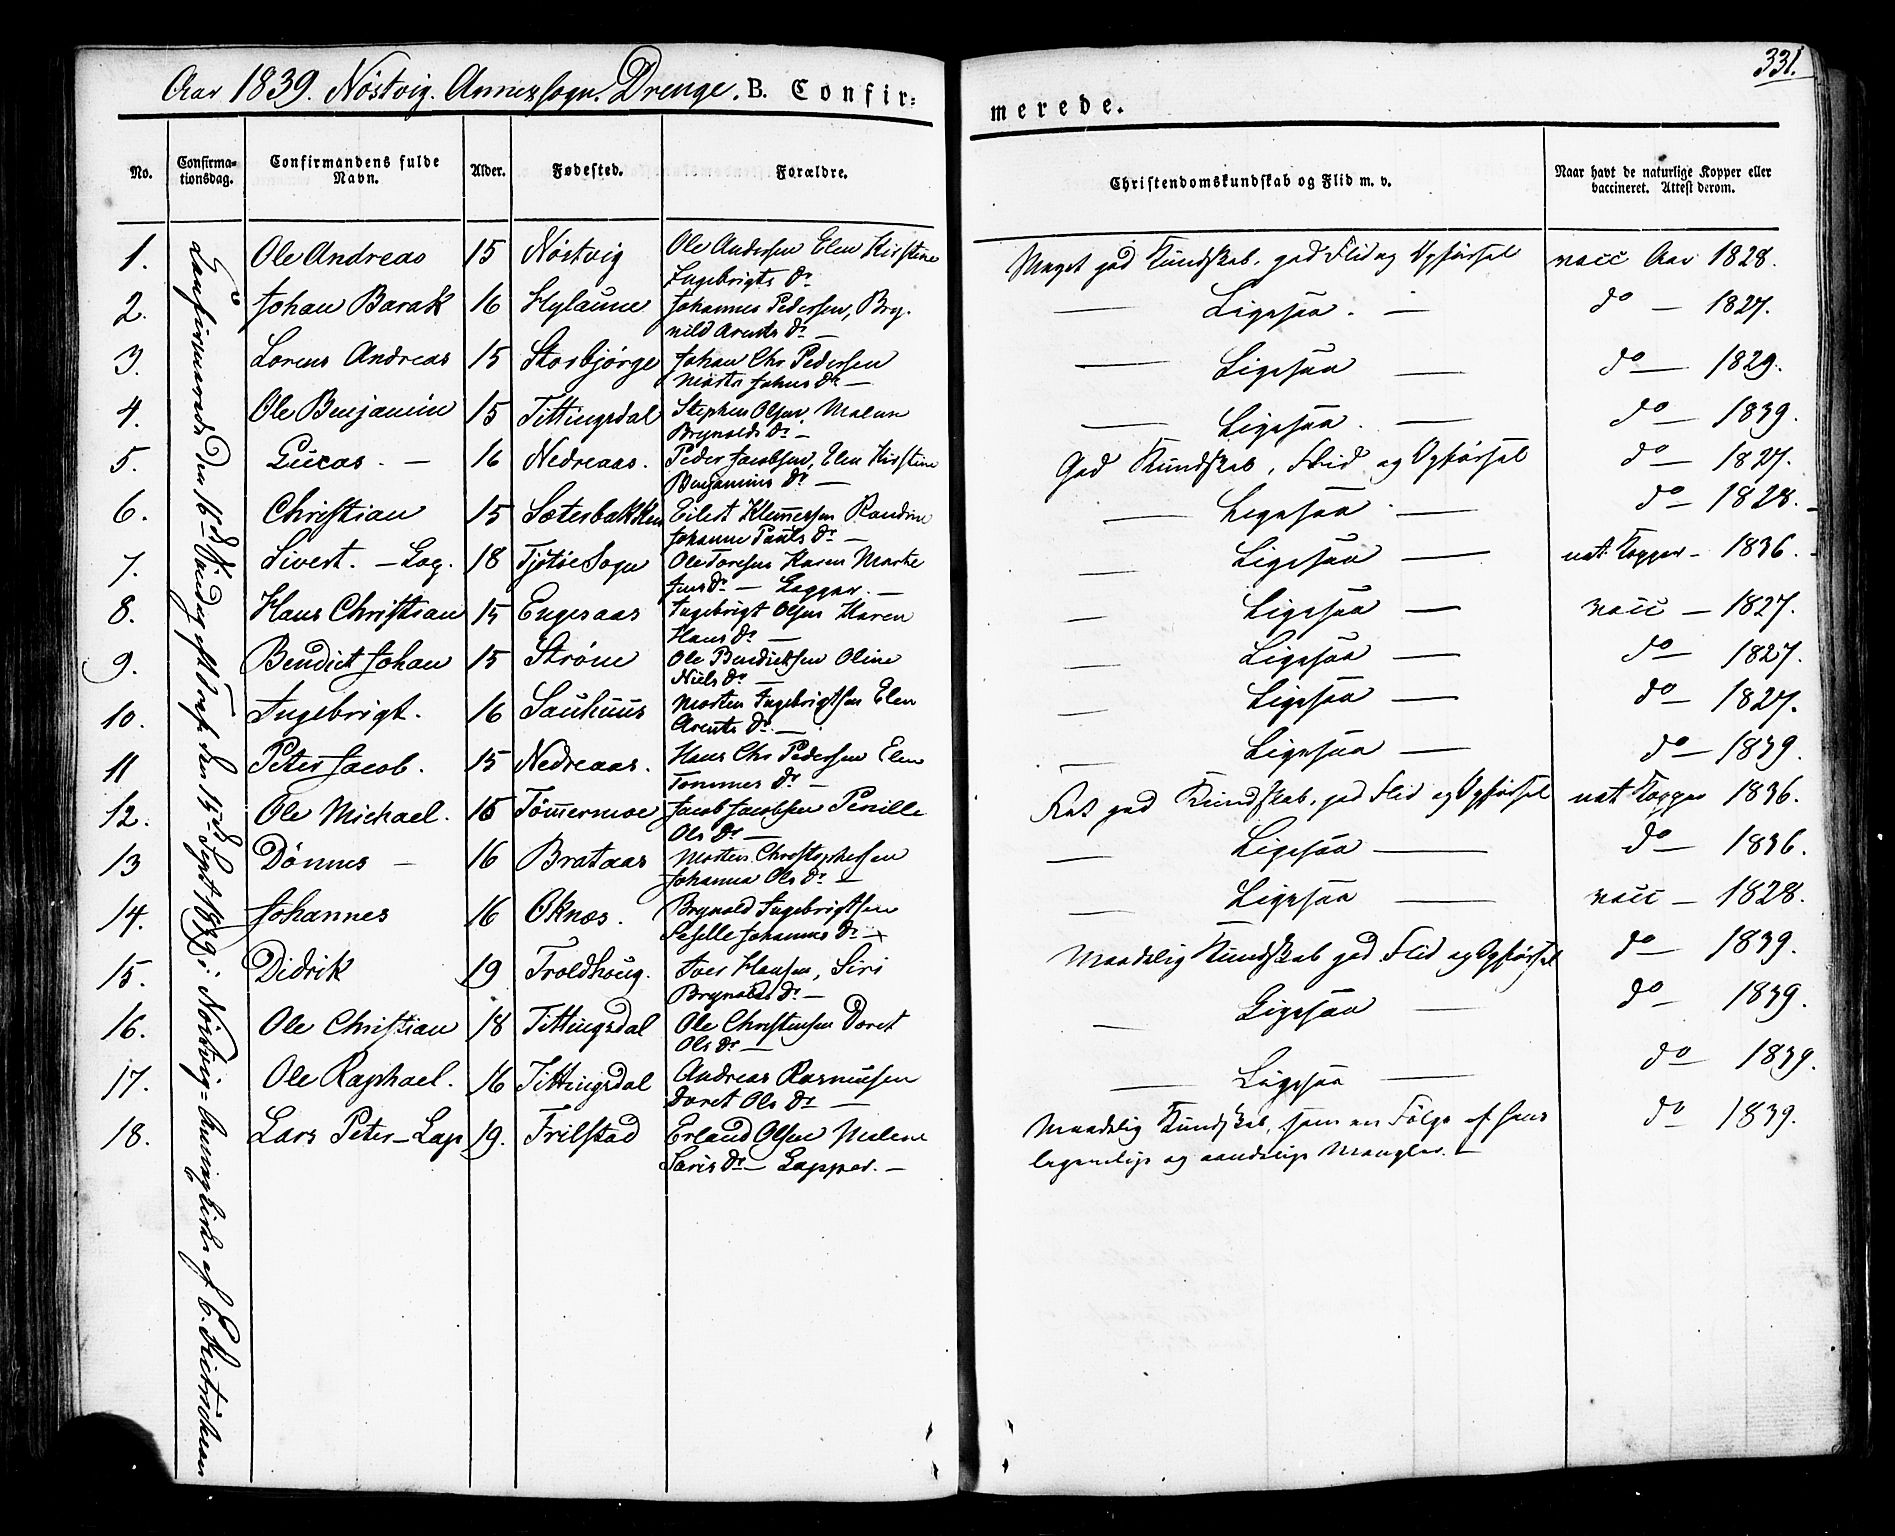 331.
Aar 1839. Nöstvig. Annexsogn. Drenge. B. Confir=
merede.
No.
Confirma-
tionsdag.
Confirmandens fulde
Navn.
Alder.
Fødested.
Forældre.
Christendomskundskab og Flid m. v.
Naar havt de naturlige Kopper eller
vaccineret. Attest derom.
Confirmerede den 16de Söndag eft Tref. den 15de Sept 1839 i Nöstvig= af
1. Ole Andreas 15 Nöstvig Ole Andersen Elen Kirstine Meget god Kundskab. god Flid og Opförsel vacc Aar 1828.
Ingebrigts Dr
2. Johan Barak 16 Hylaune Johannes Pedersen, Bry. — Ligesaa. — do — 1827.
nild Arents Dr —
3. Lorens Andreas 15 Storbjørge Johan Chr Pedersen — Ligesaa — do — 1829.
Johns Dr —
4. Ole Benjamin 15 Tittingsdal Stephen Olsen Malene — Ligesaa. — do — 1839.
Brynolds Dr —
5. Lucas. — 16 Nedreaas. Peder Jacobsen, Elen Kirstine God Kundskab, Flid og Opförsel do — 1827.
Benjamins Dr —
6. Christian 15 Sæterbakken Eilert Klemetsen Randine — Ligesaa — do — 1828.
Johanne Pauls Dr —
7. Sivert. — Lap. 18 Tjötöe Sogn Ole Toresen Karen Marthe — Ligesaa — nat: Kopper — 1836.
Jens Dr — Lapper. —
8. Hans Christian 15 Engesaas Ingebrigt Olsen Karen — Ligesaa — vacc — 1827.
Hans Dr —
9. Bendict Johan 15 Strøm Ole Bendictsen Oline — Ligesaa — do — 1827.
Niels Dr —
10. Ingebrigt. 16 Sauhuus Morten Ingebrigtsen Elen — Ligesaa — do — 1827.
Arents Dr —
11 Peter Jacob. 15 Nedreaas. Hans Chr Pedersen Elen — Ligesaa — do — 1839.
Tommes Dr —
12. Ole Michael. 16 Tömmermoe Jacob Jacobsen Pernille Ret god Kundskab, god Flid og Opförsel nat Kopper 1836.
Ols Dr —
13 Dönnes — 16 Brataas Morten Christophersen — Ligesaa — do — 1836.
Johanna Ols Dr —
14. Johannes 16 Oknæs. Brynold Ingebrigtsen — Ligesaa — vacc — 1828.
Seselle Johannes Dr —
15. Didrik 19 Troldhoug. Iver Hansen, Siri Maadelig Kundskab god Flid og Opförsel do — 1839.
Brynolds Dr —
16. Ole Christian 18 Tittingsdal Ole Christensen Doret — Ligesaa — do — 1839.
Ols Dr —
17. Ole Raphael. 16 Tittingsdal Andreas Rasmusen — Ligesaa — do — 1839.
Doret Ols Dr —
18. Lars Peter — Lap 19. Frilstad Erland Olsen Malene Maadelig Kundskab, som en Fölge af hans do — 1839.
Saris Dr — Lapper. — legemlige og aandelige Mangler. —